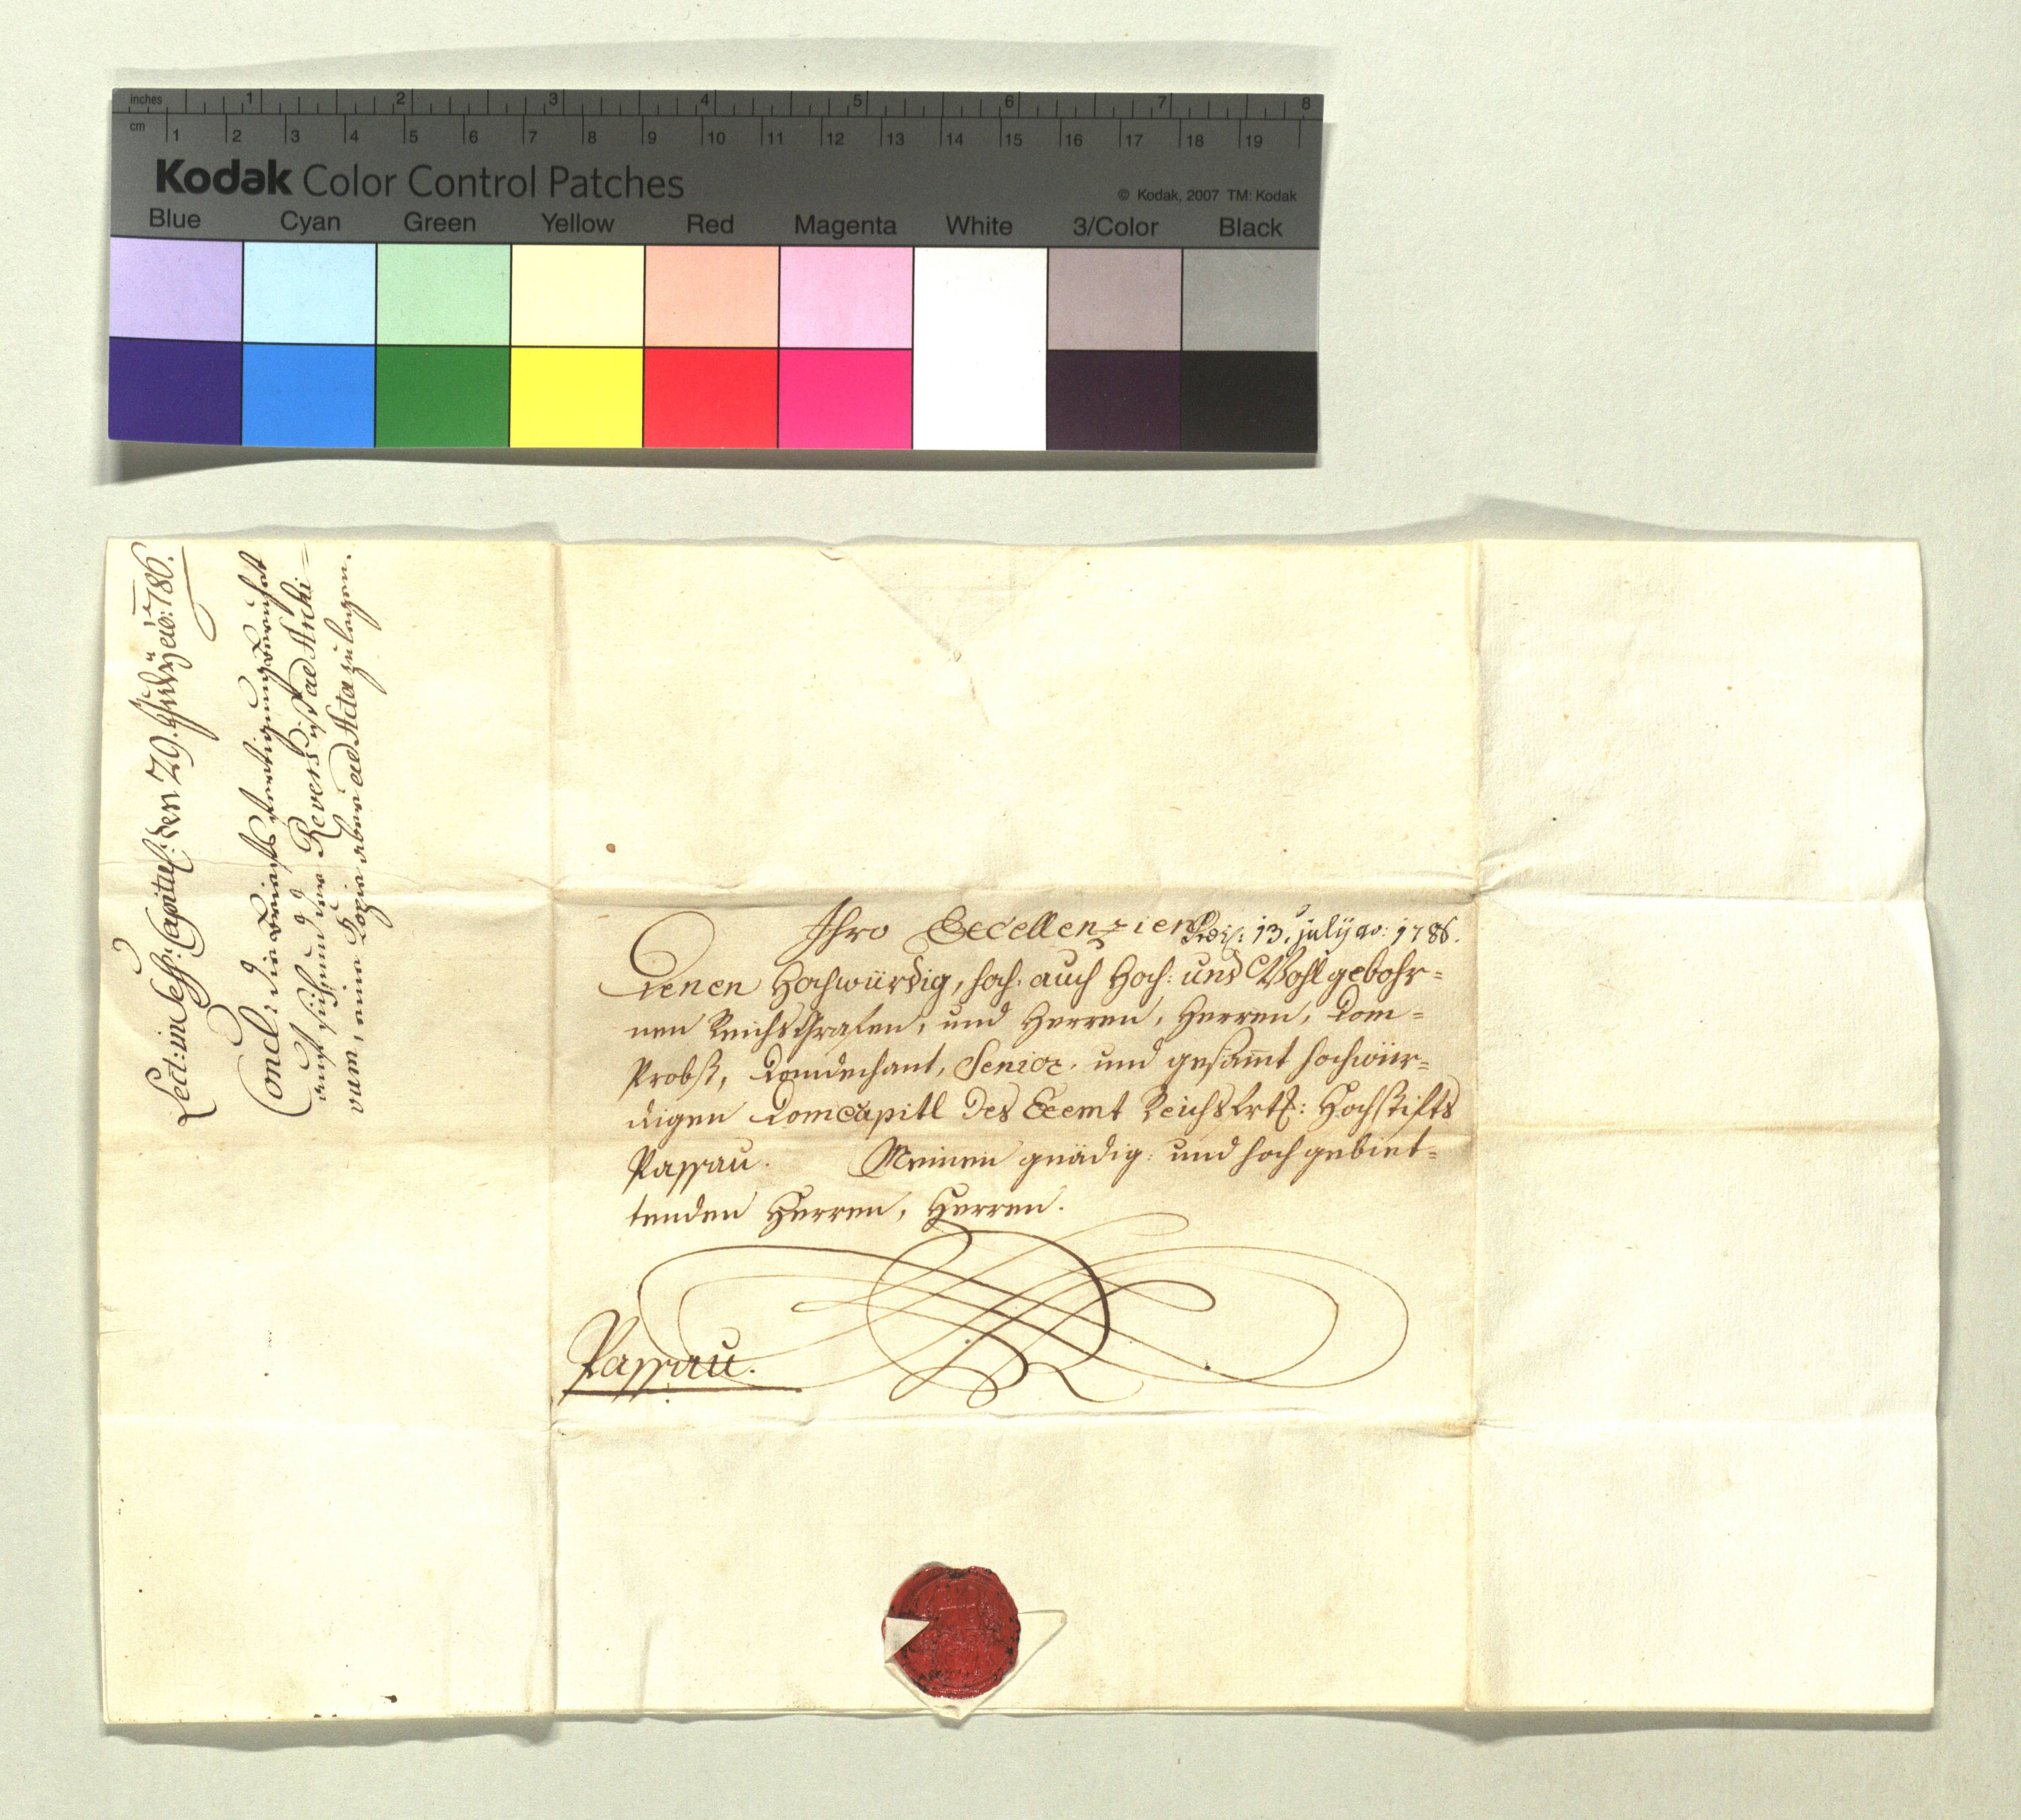 inches 1 2 3 4 5 6 7 8
cm 1 2 3 4 5 6 7 8 9 10 11 12 13 14 15 16 17 18 19
Kodak Color Control Patches
© Kodak, 2007 TM: Kodak
Blue Cyan Green Yellow Red Magenta White 3/Color Black
Lect: in Sess: Capitul: den 29. July ao: 1786.
Concl: die
auf sich, und der Revers ist ad Archi=
vum, eine Copia aber ad Acta zu legen.
Ihro Excellenzien
13. july ao: 1786.
Denen Hochwürdig, hoch: auch Hoch: und Wohlgebohr=
nen Reichs Grafen, und Herren, Herren, Dom=
Probst, Domdechant, Senior, und gesammt hochwür=
digen Domcapitl des Exemt Reichs Hochstifts
Passau. Meinen gnädig: und hoch gebiet=
tenden Herren, Herren.
Passau.